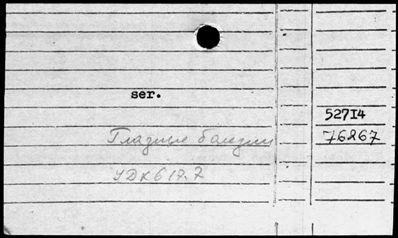 ser.
527I4
Глазные болезни
76267
УДК 617.7